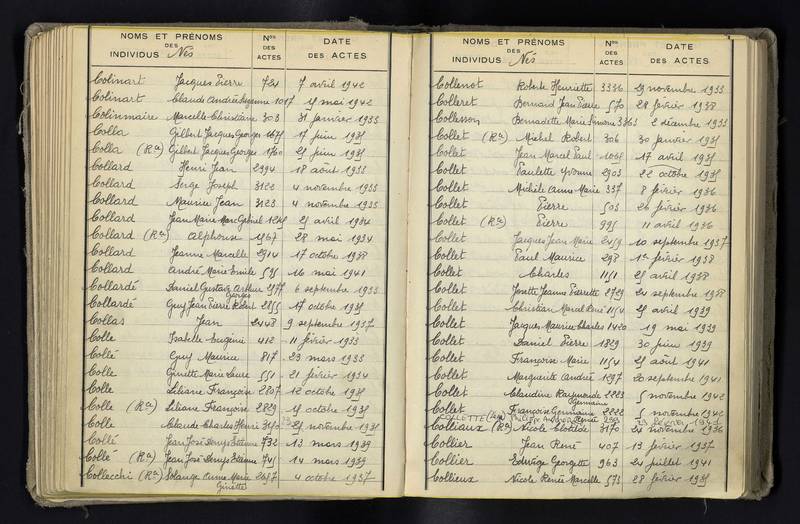 NOMS ET PRÉNOMS DES INDIVIDUS Nés Nos DES ACTES DATE DES ACTES
Colinart Jacques Pierre 721 7 avril 1942
Colinart Claude Andrée Suzanne 1017 19 mai 1942
Colinmaire Marcelle Christiane 303 31 janvier 1933
Colla Gilbert Jacques Georges 1675 17 juin 1935
Colla (Ra) Gilbert Jacques Georges 1760 25 juin 1935
Collard Henri Jean 2394 18 août 1933
Collard Serge Joseph 3123 4 novembre 1933
Collard Maurice Jean 3123 4 novembre 1933
Collard Jean Marie Marc Gabriel 25 avril 1934
Collard (Ra) Alphonse 1567 28 mai 1934
Collard Jeanne Marcelle 2914 17 octobre 1938
Collard André Marie Emile 595 16 mai 1941
Collardé Daniel Gustave Arthur 2577 6 septembre 1933
Georges
Collardé Guy Jean Pierre Robert 2855 17 octobre 1935
Collas Jean 2448 9 septembre 1937
Colle Isabelle Eugénie 412 11 février 1933
Collé Guy Maurice 817 23 mars 1933
Colle Ginette Marie Laure 551 21 février 1934
Colle Liliane Françoise 2807 12 octobre 1935
Colle (Ra) Liliane Françoise 2829 15 octobre 1935
Colle Claude Charles Henri 25 novembre 1935
Collé Jean José Denys Etienne 732 13 mars 1939
Collé (Ra) Jean José Denys Etienne 745 14 mars 1939
Collecchi (Ra) Solange Anne Marie 2697 4 octobre 1937
Ginette
NOMS ET PRÉNOMS DES INDIVIDUS Nés Nos DES ACTES DATE DES ACTES
Collenot Roberte Henriette 3336 29 novembre 1933
Colleret Bernard Jean Pierre 570 28 février 1938
Collesson Bernadette Marie Simone 3363 2 décembre 1933
Collet (Ra) Michel Robert 306 30 janvier 1935
Collet Jean Marcel Paul 1068 17 avril 1935
Collet Paulette Yvonne 2903 22 octobre 1935
Collet Michèle Anne Marie 337 8 février 1936
Collet Pierre 503 26 février 1936
Collet (Ra) Pierre 995 11 avril 1936
Collet Jacques Jean Marie 2459 10 septembre 1937
Collet Paul Maurice 298 1er février 1938
Collet Charles 1151 25 avril 1938
Collet Josette Jeanne Pierrette 2729 24 septembre 1938
Collet Christian Marcel René 1154 25 avril 1939
Collet Jacques Maurice Charles 1420 19 mai 1939
Collet Daniel Pierre 1829 30 juin 1939
Collet Françoise Marie 1154 25 août 1941
Collet Marguerite Andrée 1297 20 septembre 1941
Collet Claudine Raymonde 2223 5 novembre 1942
Germaine
Collet Françoise Germaine 2222 5 novembre 1942
COLLETTE (Ra) Renée 23 février 1941
Colliaux (Ra) Nicole Clotilde 3170 24 novembre 1936
Collier Jean René 407 13 février 1937
Collier Edwige Georgette 963 24 juillet 1941
Collieux Nicole Renée Marcelle 573 28 février 1935